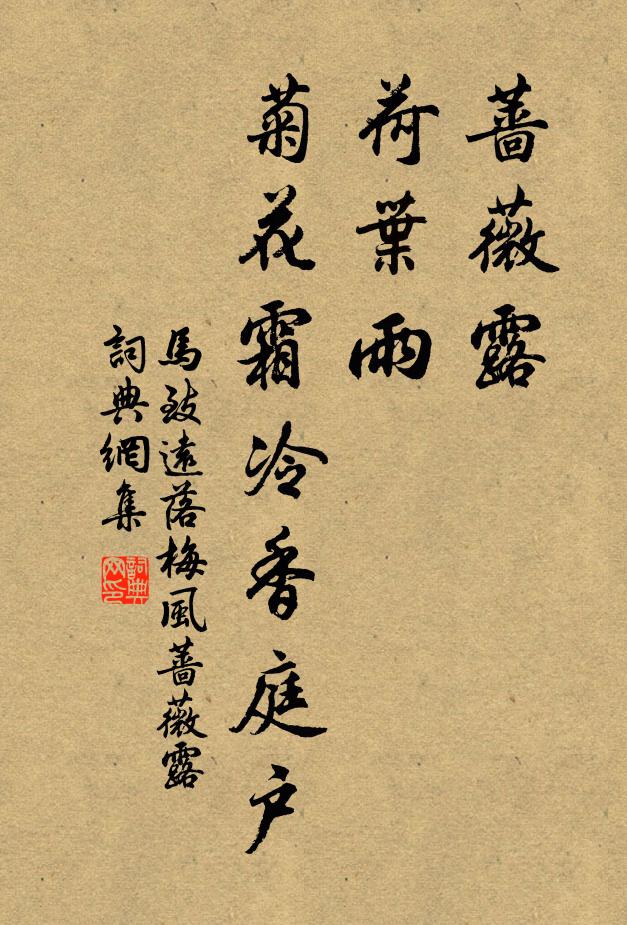 薔薇露
荷葉雨
菊花霜冷香庭户
馬致遠落梅風薔薇露
詞典網集
詞典網印